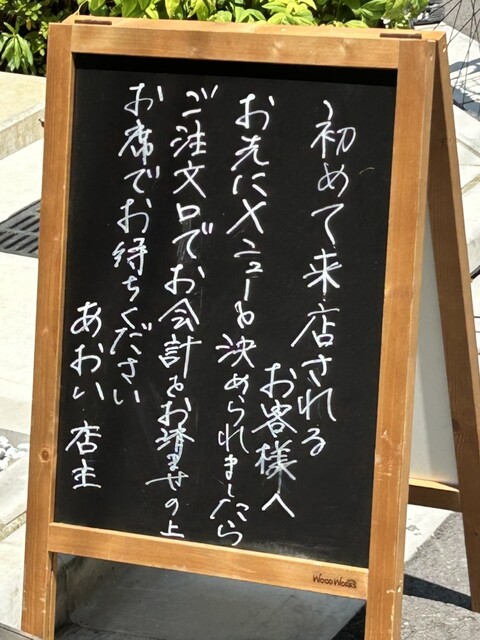 初めて来店される
お客様へ
お先にメニューを決められましたら
ご注文口でお会計をお済ませの上
お席でお待ちください
あおい 店主
WOOD WORKS